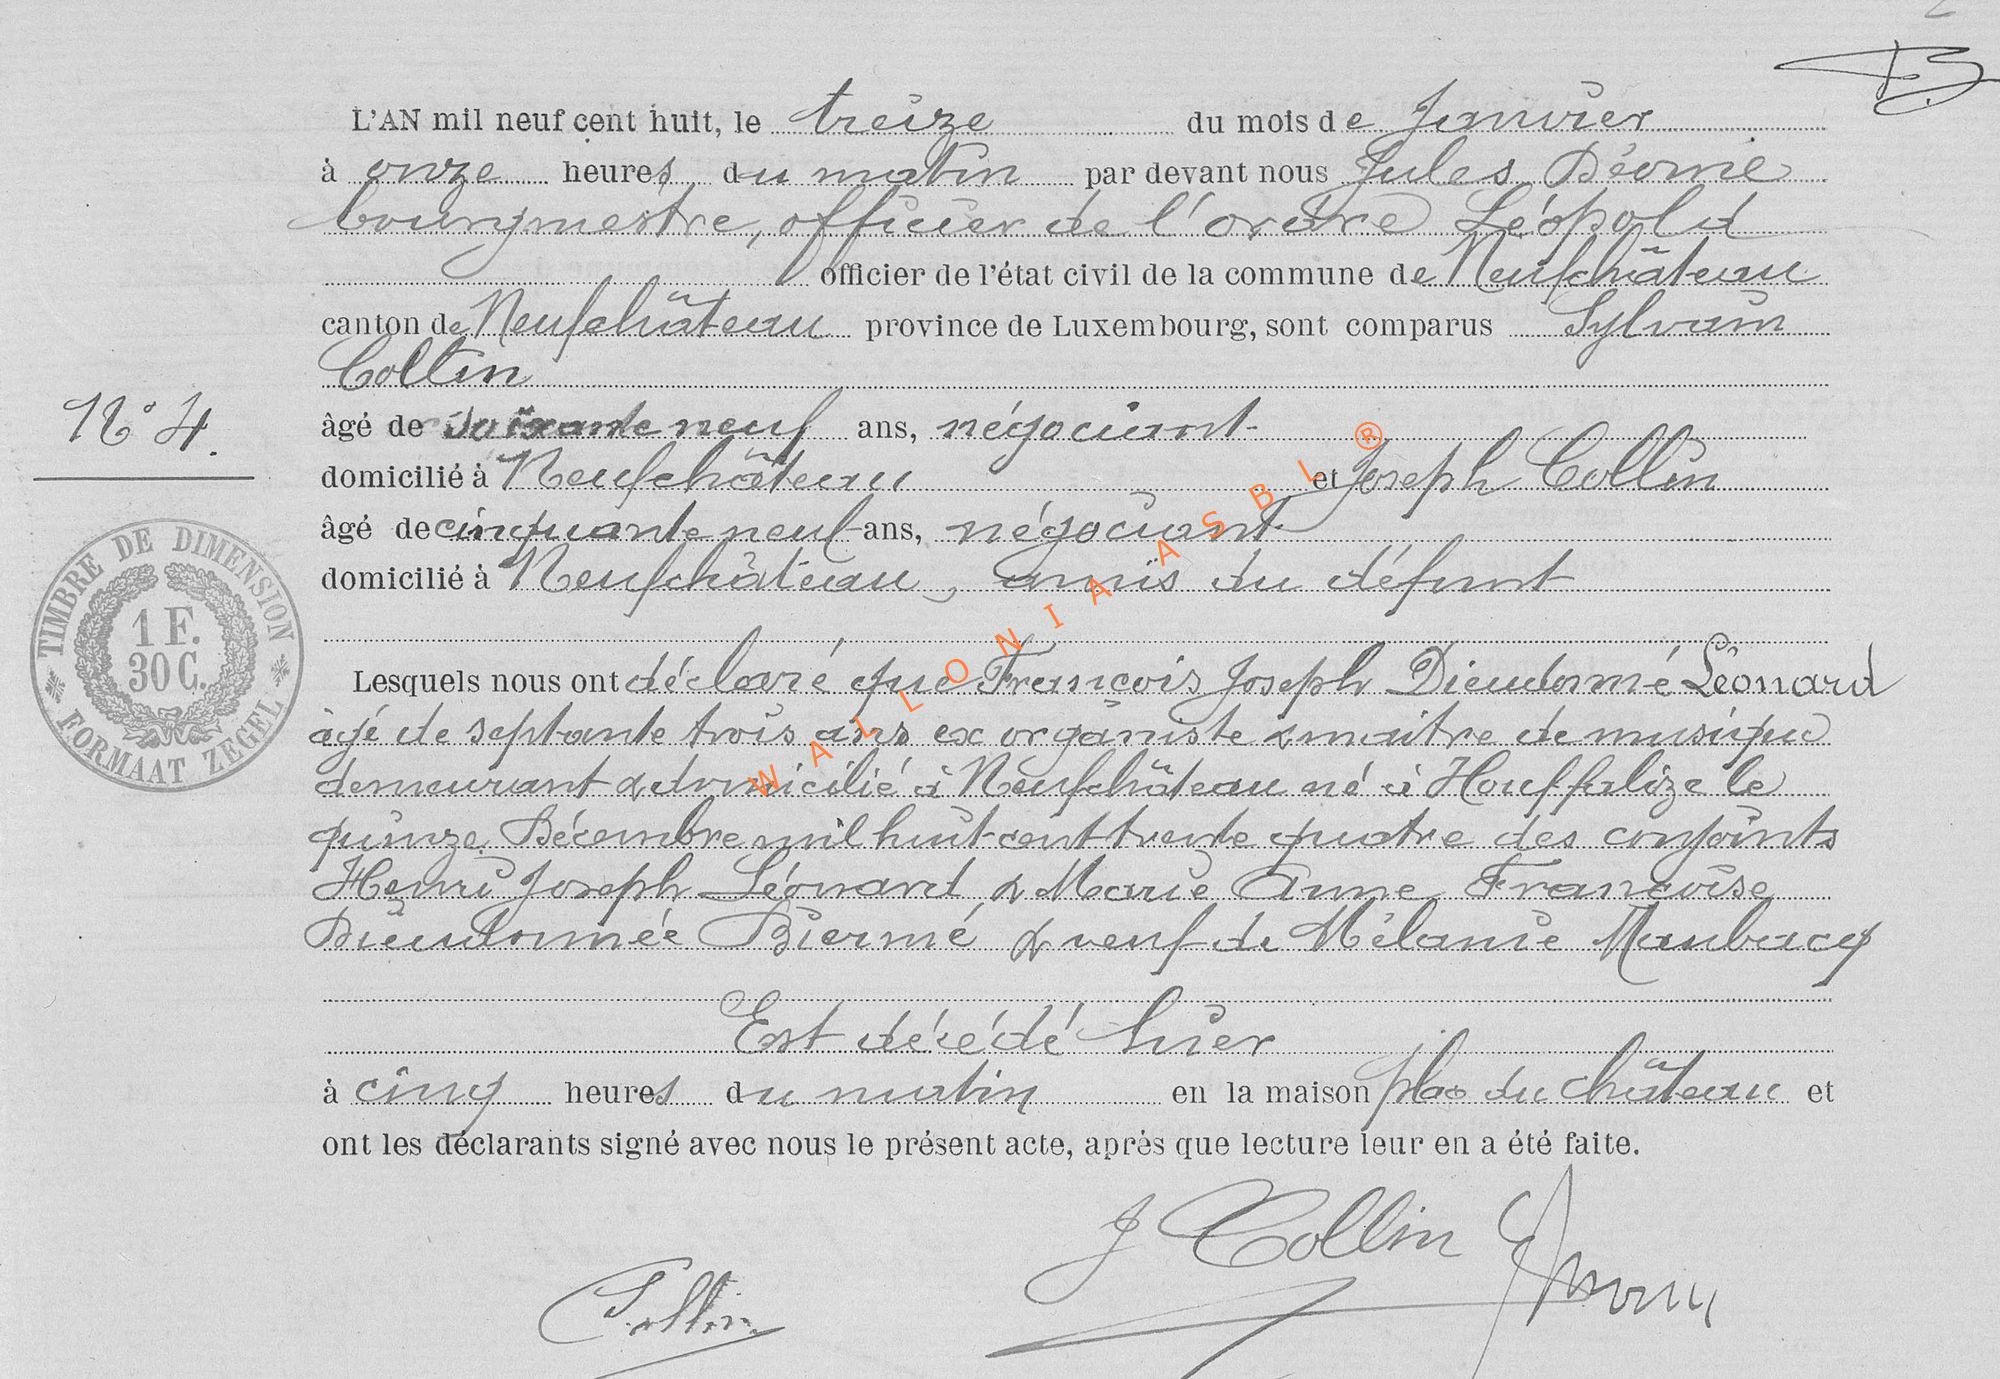 L'AN mil neuf cent huit, le treize du mois de Janvier
à onze heures du matin par devant nous Jules
bourgmestre, officier de l'ordre Léopold
officier de l'état civil de la commune de Neufchâteau
canton de Neufchâteau province de Luxembourg, sont comparus Sylvain
Collin
N° 4.
âgé de soixante neuf ans, négociant
domicilié à Neufchâteau et Joseph Collin
âgé de cinquante neuf ans, négociant
domicilié à Neufchâteau, amis du défunt
TIMBRE DE DIMENSION
1 F.
30 C.
FORMAAT ZEGEL
Lesquels nous ont déclaré que François Joseph Dieudonné Léonard
âgé de septante trois ans ex organiste & maître de musique
demeurant & domicilié à Neufchâteau né à Houffalize le
quinze Décembre mil huit cent trente quatre des conjoints
Henri Joseph Léonard & Marie Anne Françoise
Dieudonnée Biermé & veuf de Mélanie Maubacq
Est décédé hier
à cinq heures du matin en la maison place du château et
ont les déclarants signé avec nous le présent acte, après que lecture leur en a été faite.
J Collin
Collin
WALLONIA ASBL ®